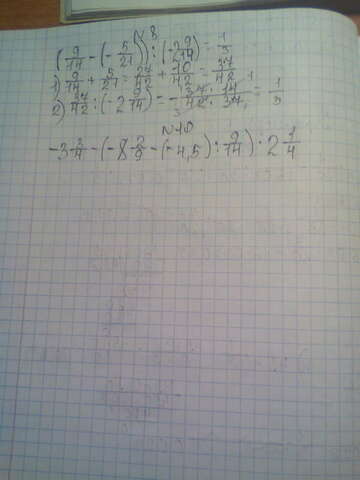 (9/14 - (-5/21)) : (-2 9/14) = 1/3
1) 9/14 + 5/21 = 27/42 + 10/42 = 37/42
2) 37/42 : (-2 9/14) = - 37/42 · 14/37 = 1/3
N10
-3 3/4 - (-8 2/9 - (-4,5) : 9/14) : 2 1/4